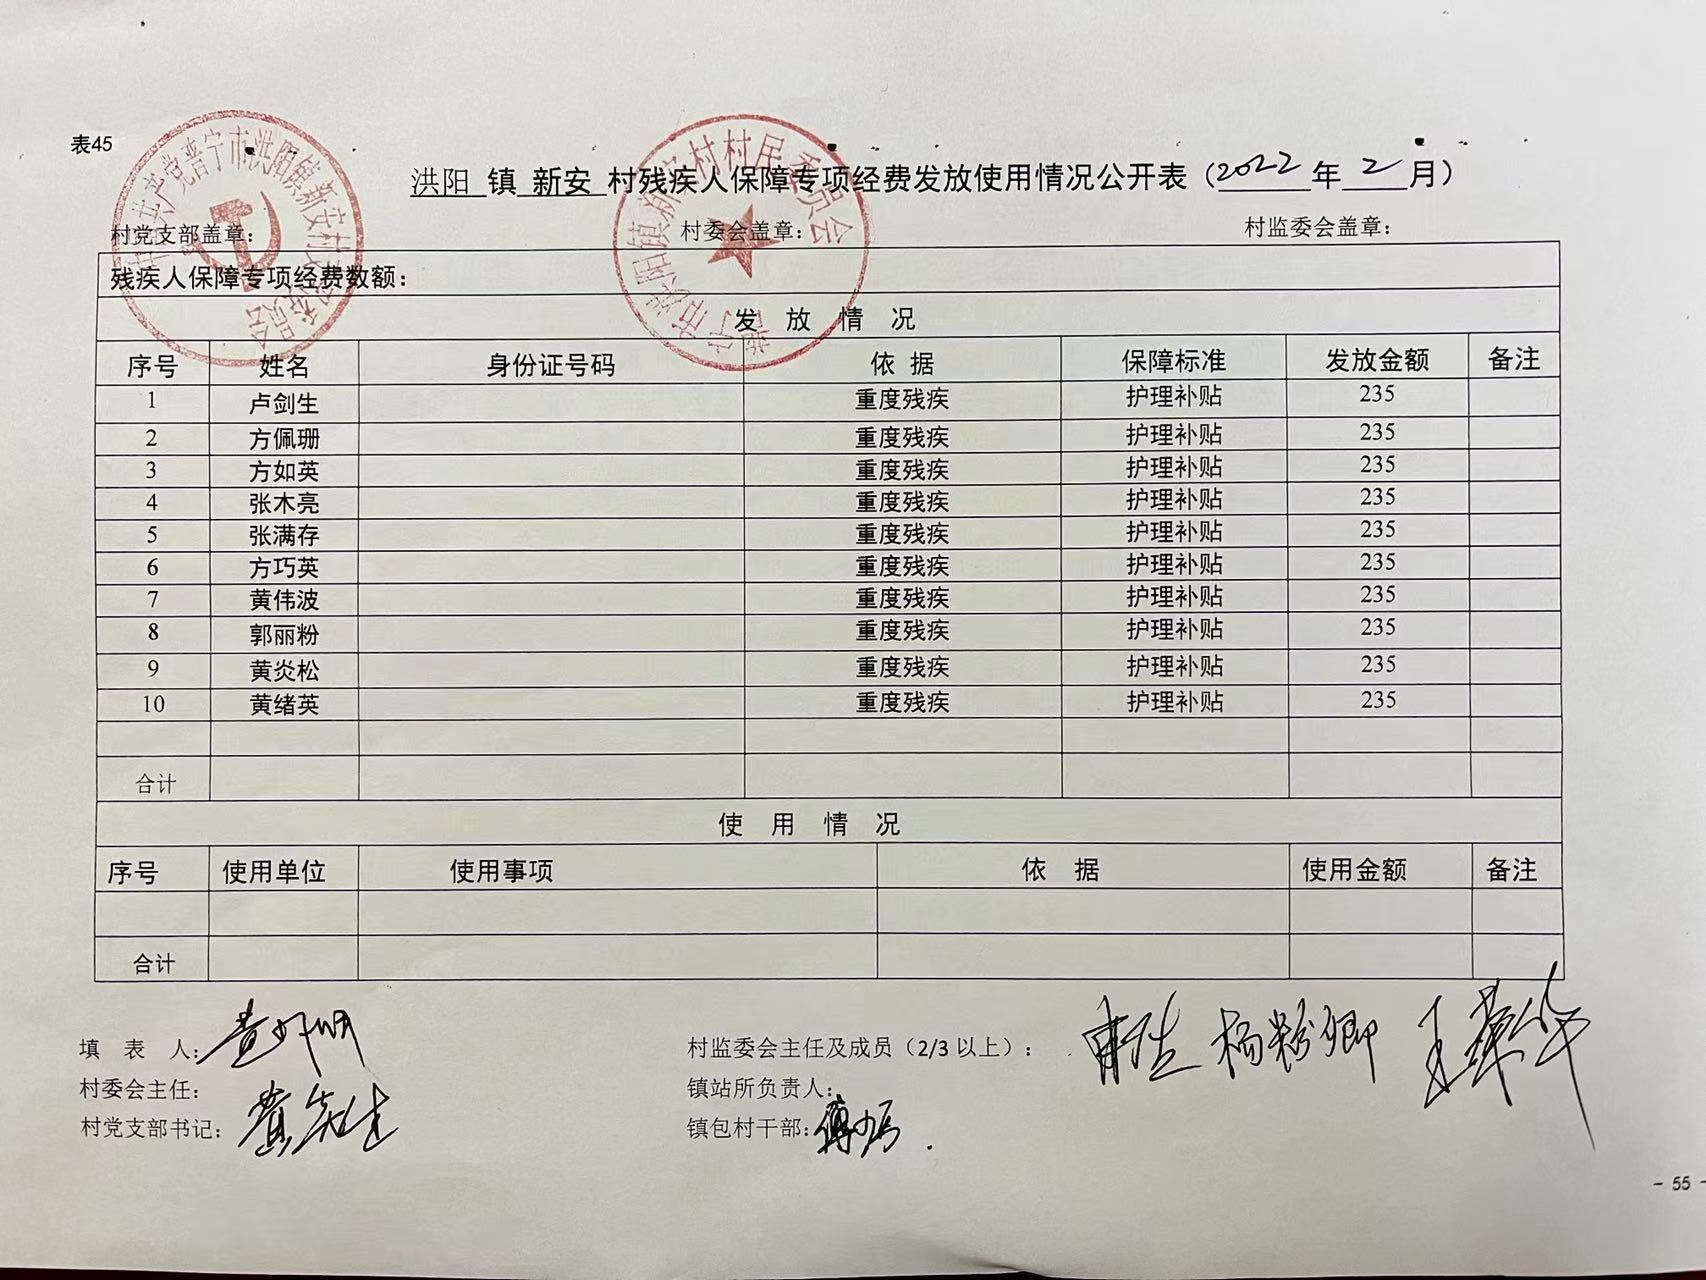 表45
洪阳 镇 新安 村残疾人保障专项经费发放使用情况公开表（2022年 2 月）
村党支部盖章： 村委会盖章： 村监委会盖章：
残疾人保障专项经费数额：
发 放 情 况
序号 姓名 身份证号码 依 据 保障标准 发放金额 备注
1 卢剑生 重度残疾 护理补贴 235
2 方佩珊 重度残疾 护理补贴 235
3 方如英 重度残疾 护理补贴 235
4 张木亮 重度残疾 护理补贴 235
5 张满存 重度残疾 护理补贴 235
6 方巧英 重度残疾 护理补贴 235
7 黄伟波 重度残疾 护理补贴 235
8 郭丽粉 重度残疾 护理补贴 235
9 黄炎松 重度残疾 护理补贴 235
10 黄绪英 重度残疾 护理补贴 235
合计
使 用 情 况
序号 使用单位 使用事项 依 据 使用金额 备注
合计
填 表 人： 村监委会主任及成员（2/3以上）： 杨粉卿
村委会主任： 镇站所负责人：
村党支部书记： 镇包村干部：
- 55 -
普宁市洪阳镇新安村村民委员会